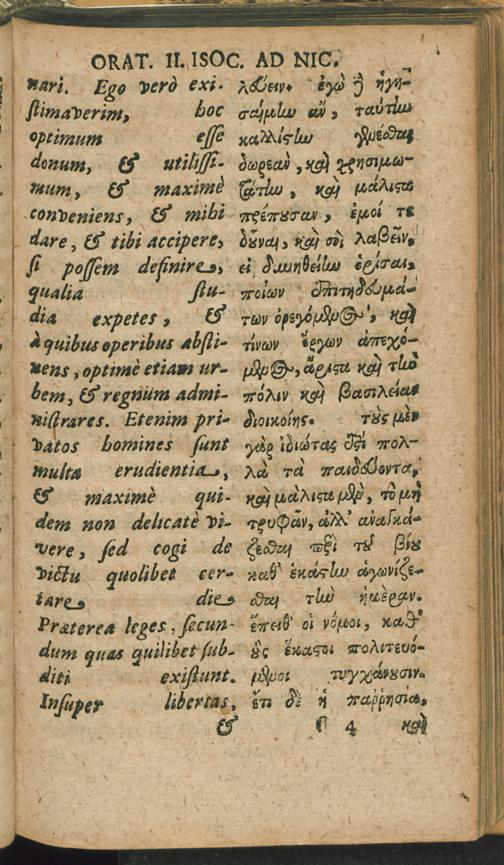 ORAT. II. ISOC. AD NIC.
nari. Ego verò exi-
ſtimaverim, hoc
optimum eſſe
donum, & utiliſſi-
mum, & maximè
conveniens, & mihi
dare, & tibi accipere,
ſi poſſem definire,
qualia ſtu-
dia expetes, &
à quibus operibus abſti-
nens, optimè etiam ur-
bem, & regnum admi-
niſtrares. Etenim pri-
vatos homines ſunt
multa erudientia,
& maximè qui-
dem non delicatè vi-
vere, ſed cogi de
victu quolibet cer-
tare die
Præterea leges, ſecun-
dum quas quilibet ſub-
diti exiſtunt.
Inſuper libertas,
&
λεύειν. ἐγὼ δ ἡγη-
σαίμην ἂν, ταύτην
καλλίστην γενέσθαι
δωρεὰν, καὶ χρησιμω-
τάτην, καὶ μάλιστα
πρέπουσαν, ἐμοί τε
δοῦναι, καὶ σοὶ λαβεῖν,
εἰ δυνηθείην ὁρίσαι,
ποίων ἐπιτηδευμά-
των ὀρεγόμενος, καὶ
τίνων ἔργων ἀπεχό-
μενος, ἄριστα καὶ τὴν
πόλιν καὶ βασιλείαν
διοικοίης. τοὺς μὲν
γὰρ ἰδιώτας ἐστὶ πολ-
λὰ τὰ παιδεύοντα,
καὶ μάλιστα μὲν, τὸ μὴ
τρυφᾶν, ἀλλ' ἀναγκά-
ζεσθαι περὶ τοῦ βίου
καθ' ἑκάστην ἀγωνίζε-
σθαι τὴν ἡμέραν.
ἔπειθ' οἱ νόμοι, καθ'
οὓς ἕκαστοι πολιτευό-
μενοι τυγχάνουσιν.
ἔτι δὲ ἡ παῤῥησία,
4 καὶ